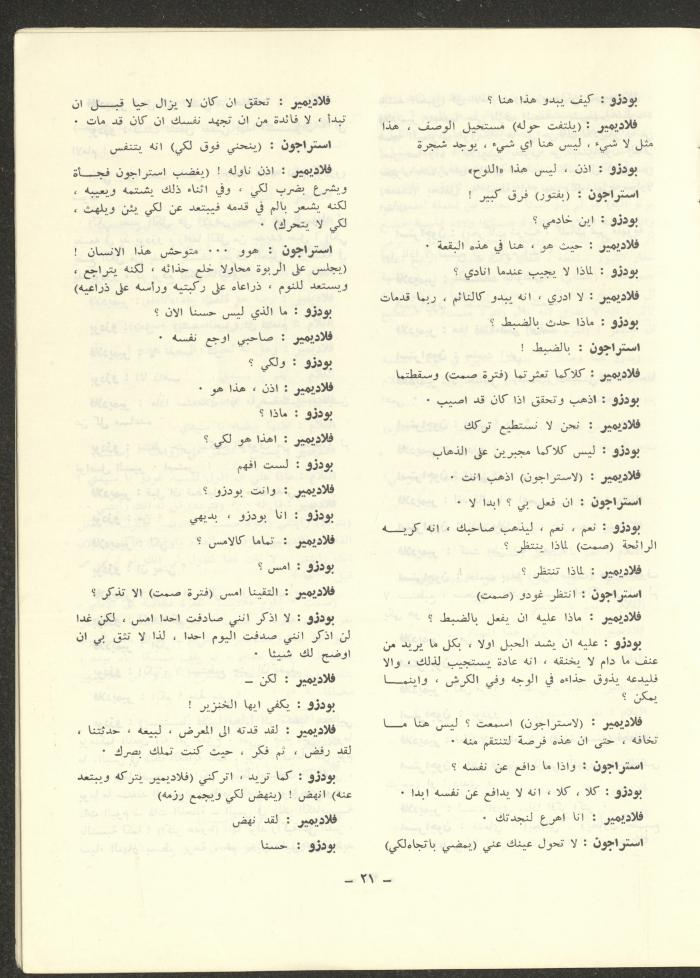 بودزو : كيف يبدو هذا هنا ؟
فلاديمير : (يلتفت حوله) مستحيل الوصف ، هذا
مثل لا شيء ، ليس هنا اي شيء ، يوجد شجرة
بودزو : اذن ، ليس هذا «اللوح»
استراجون : (بفتور) فرق كبير !
بودزو : اين خادمي ؟
فلاديمير : حيث هو ، هنا في هذه البقعة ٠
بودزو : لماذا لا يجيب عندما انادي ؟
فلاديمير : لا ادري ، انه يبدو كالنائم ، ربما قدمات
بودزو : ماذا حدث بالضبط ؟
استراجون : بالضبط !
فلاديمير : كلاكما تعثرتما (فترة صمت) وسقطتما
بودزو : اذهب وتحقق اذا كان قد اصيب ٠
فلاديمير : نحن لا نستطيع تركك
بودزو : ليس كلاكما مجبرين على الذهاب
فلاديمير : (لاستراجون) اذهب انت ٠
استراجون : ان فعل بي ؟ ابدا لا ٠
بودزو : نعم ، نعم ، ليذهب صاحبك ، انه كريــه
الرائحة (صمت) لماذا ينتظر ؟
فلاديمير : لماذا تنتظر ؟
استراجون : انتظر غودو (صمت)
فلاديمير : ماذا عليه ان يفعل بالضبط ؟
بودزو : عليه ان يشد الحبل اولا ، بكل ما يريد من
عنف ما دام لا يخنقه ، انه عادة يستجيب لذلك ، والا
فليدعه يذوق حذاءه في الوجه وفي الكرش ، واينمــا
يمكن ؟
فلاديمير : (لاستراجون) اسمعت ؟ ليس هنا مــا
تخافه ، حتى ان هذه فرصة لتنتقم منه ٠
استراجون : واذا ما دافع عن نفسه ؟
بودزو : كلا ، كلا ، انه لا يدافع عن نفسه ابدا ٠
فلاديمير : انا اهرع لنجدتك ٠
استراجون : لا تحول عينك عني (يمضي باتجاه لكي)
فلاديمير : تحقق ان كان لا يزال حيا قبــل ان
تبدأ ، لا فائدة من ان تجهد نفسك ان كان قد مات ٠
استراجون : (ينحني فوق لكي) انه يتنفس
فلاديمير : اذن ناوله ! (يغضب استراجون فجــأة
ويشرع بضرب لكي ، وفي اثناء ذلك يشتمه ويعيبه ،
لكنه يشعر بالم في قدمه فيبتعد عن لكي يئن ويلهث ،
لكي لا يتحرك) ٠
استراجون : هوو ٠٠٠ متوحش هذا الانسان !
(يجلس على الربوة محاولا خلع حذائه ، لكنه يتراجع ،
ويستعد للنوم ، ذراعاه على ركبتيه ورأسه على ذراعيه)
بودزو : ما الذي ليس حسنا الان ؟
فلاديمير : صاحبي اوجع نفسه ٠
بودزو : ولكي ؟
فلاديمير : اذن ، هذا هو ٠
بودزو : ماذا ؟
فلاديمير : اهذا هو لكي ؟
بودزو : لست افهم
فلاديمير : وانت بودزو ؟
بودزو : انا بودزو ، بديهي
فلاديمير : تماما كالامس ؟
بودزو : امس ؟
فلاديمير : التقينا امس (فترة صمت) الا تذكر ؟
بودزو : لا اذكر انني صادفت احدا امس ، لكن غدا
لن اذكر انني صدفت اليوم احدا ، لذا لا تثق بي ان
اوضح لك شيئا ٠
فلاديمير : لكن ــ
بودزو : يكفي ايها الخنزير !
فلاديمير : لقد قدته الى المعرض ، لبيعه ، حدثتنا ،
لقد رفض ، ثم فكر ، حيث كنت تملك بصرك ٠
بودزو : كما تريد ، اتركني (فلاديمير يتركه ويبتعد
عنه) انهض ! (ينهض لكي ويجمع رزمه)
فلاديمير : لقد نهض
بودزو : حسنا
– ٢١ –